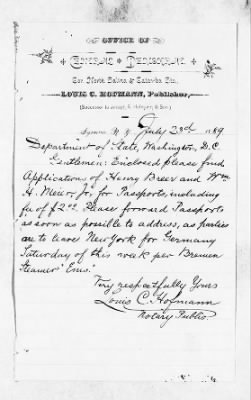 OFFICE OF
Cor. North Salina & Catawba Sts.,
LOUIS C. HOFMANN, Publisher,
(Successor to & Son.)
Syracuse, N. Y. July 23d 1889
Department of State, Washington, D.C.
Gentlemen: Enclosed please find
Applications of Henry Breer and Wm
H. Meier, Jr. for Passports, including
fee of $2.00. Please forward Passports
as soon as possible to address, as parties
are to leave New York for Germany
Saturday of this week per Bremen
Steamer "Ems."
Very respectfully Yours
Louis C. Hofmann
Notary Public.